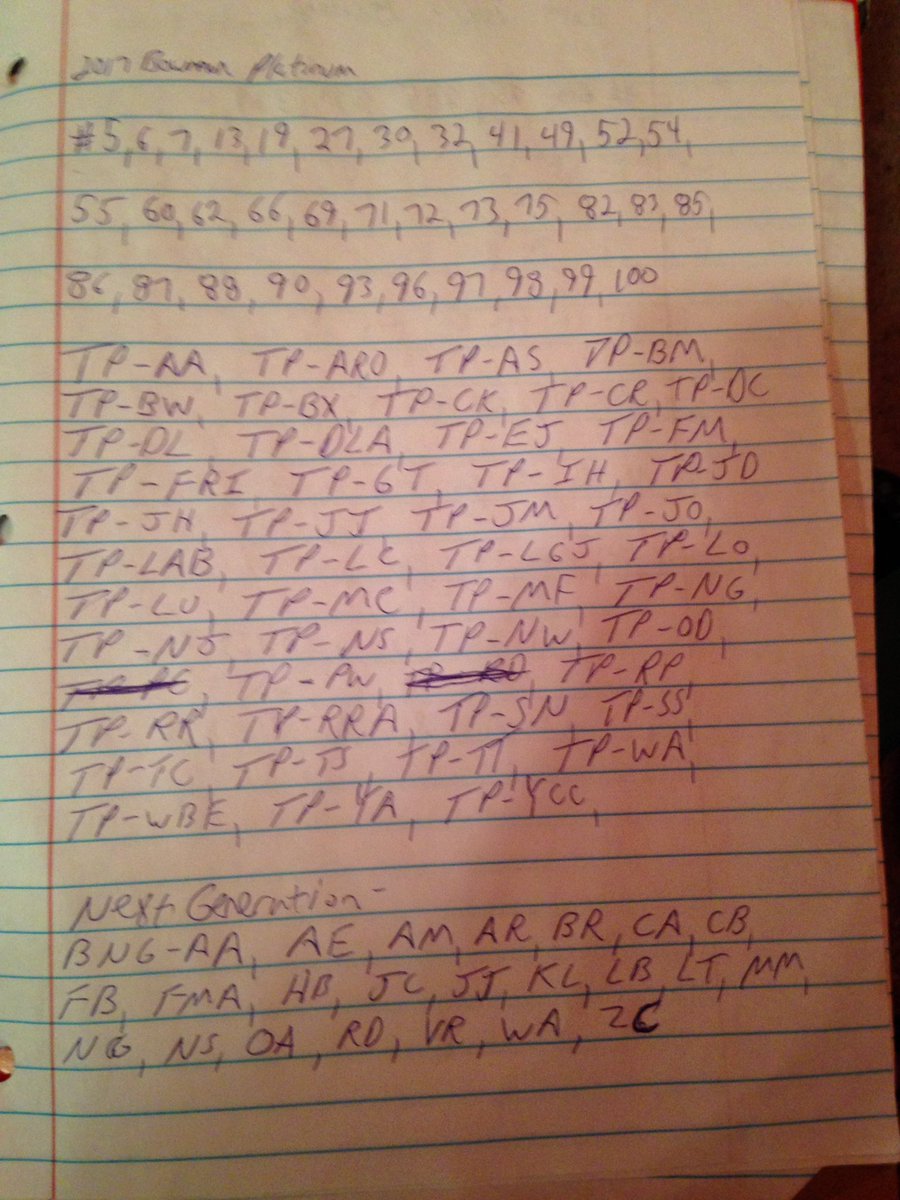 2017 Bowman Platinum
#5, 6, 7, 13, 19, 27, 30, 32, 41, 49, 52, 54,
55, 60, 62, 66, 69, 71, 72, 73, 75, 82, 83, 85,
86, 87, 88, 90, 93, 96, 97, 98, 99, 100
TP-AA, TP-ARO, TP-AS, TP-BM,
TP-BW, TP-BX, TP-CK, TP-CR, TP-DC
TP-DL, TP-DLA, TP-EJ, TP-FM,
TP-FRI, TP-GT, TP-IH, TP-JD
TP-JH, TP-JJ, TP-JM, TP-JO,
TP-LAB, TP-LC, TP-LGJ, TP-LO,
TP-LU, TP-MC, TP-MF, TP-NG,
TP-NJ, TP-NS, TP-NW, TP-OD,
TP-PW, TP-RP,
TP-RR, TP-RRA, TP-SN, TP-SS,
TP-TC, TP-TS, TP-TT, TP-WA,
TP-WBE, TP-YA, TP-YCC,
Next Generation-
BNG-AA, AE, AM, AR, BR, CA, CB,
FB, FMA, HB, JC, JJ, KL, LB, LT, MM,
NG, NS, OA, RD, VR, WA, ZC